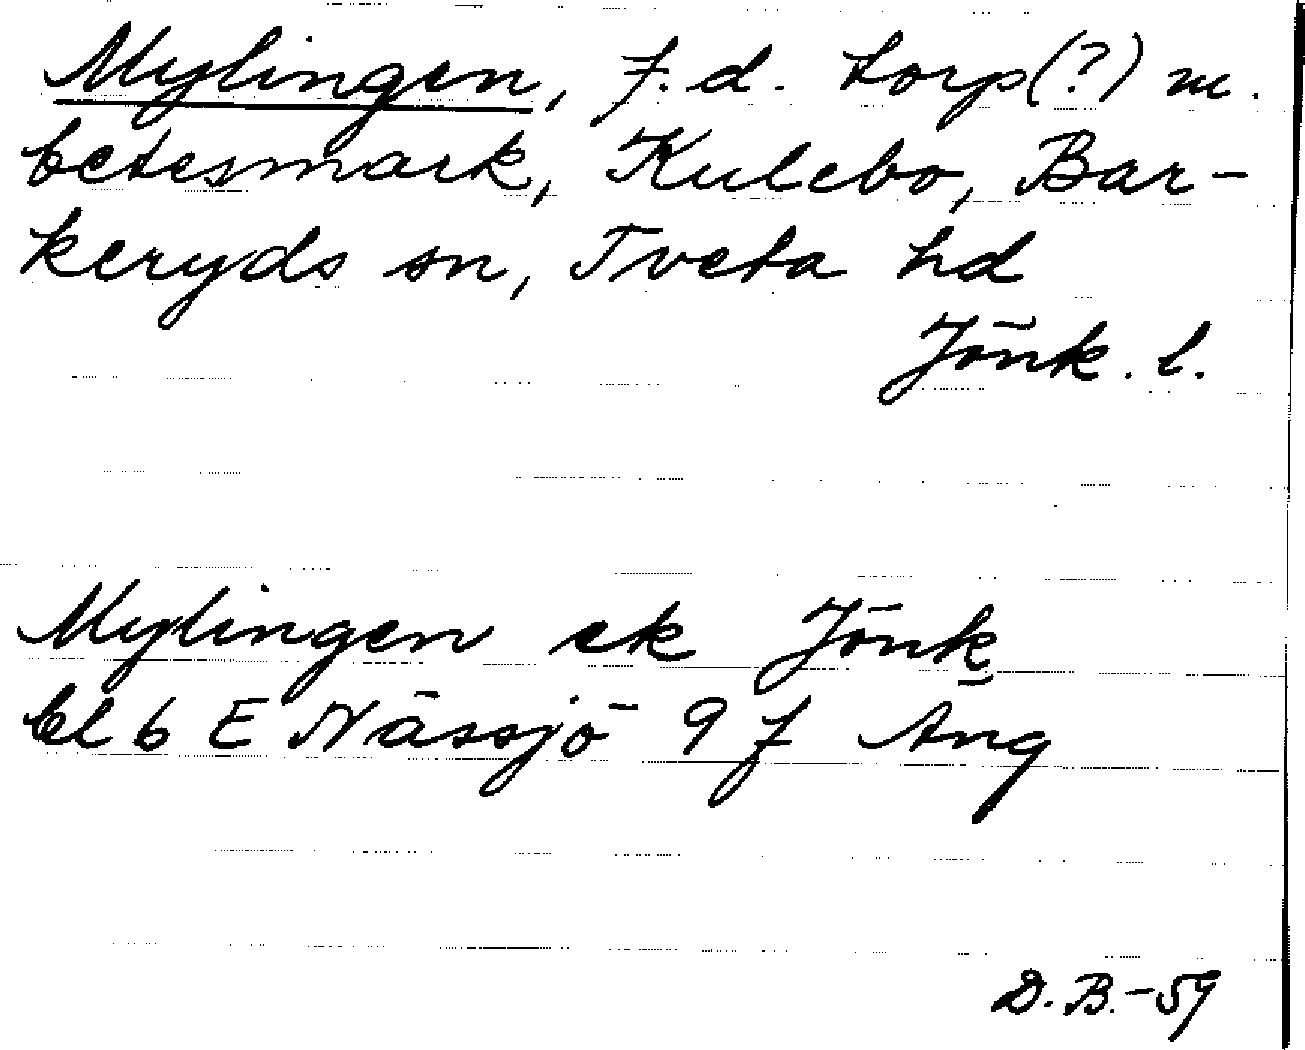 Mylingen, f.d. torp(?) m.
betesmark, Kulebo, Bar-
keryds sn, Tveta hd
Jönk. l.
Mylingen ek Jönk
bl 6 E Nässjö 9 f Ang
D.B.-59